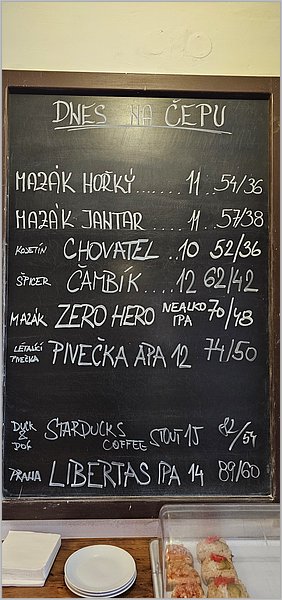 DNES NA ČEPU
MAZÁK HOŘKÝ....... 11 .. 54/36
MAZÁK JANTAR ...... 11 .. 57/38
KOJETÍN CHOVATEL ..10 52/36
ŠPICER CAMBÍK ... 12 62/42
MAZÁK ZERO HERO NEALKO IPA 70/48
LÉTAJÍCÍ PIVEČKA PIVEČKA APA 12 74/50
DUCK & DOG STARDUCKS COFFEE STOUT 15 82/54
PRAHA LIBERTAS IPA 14 89/60